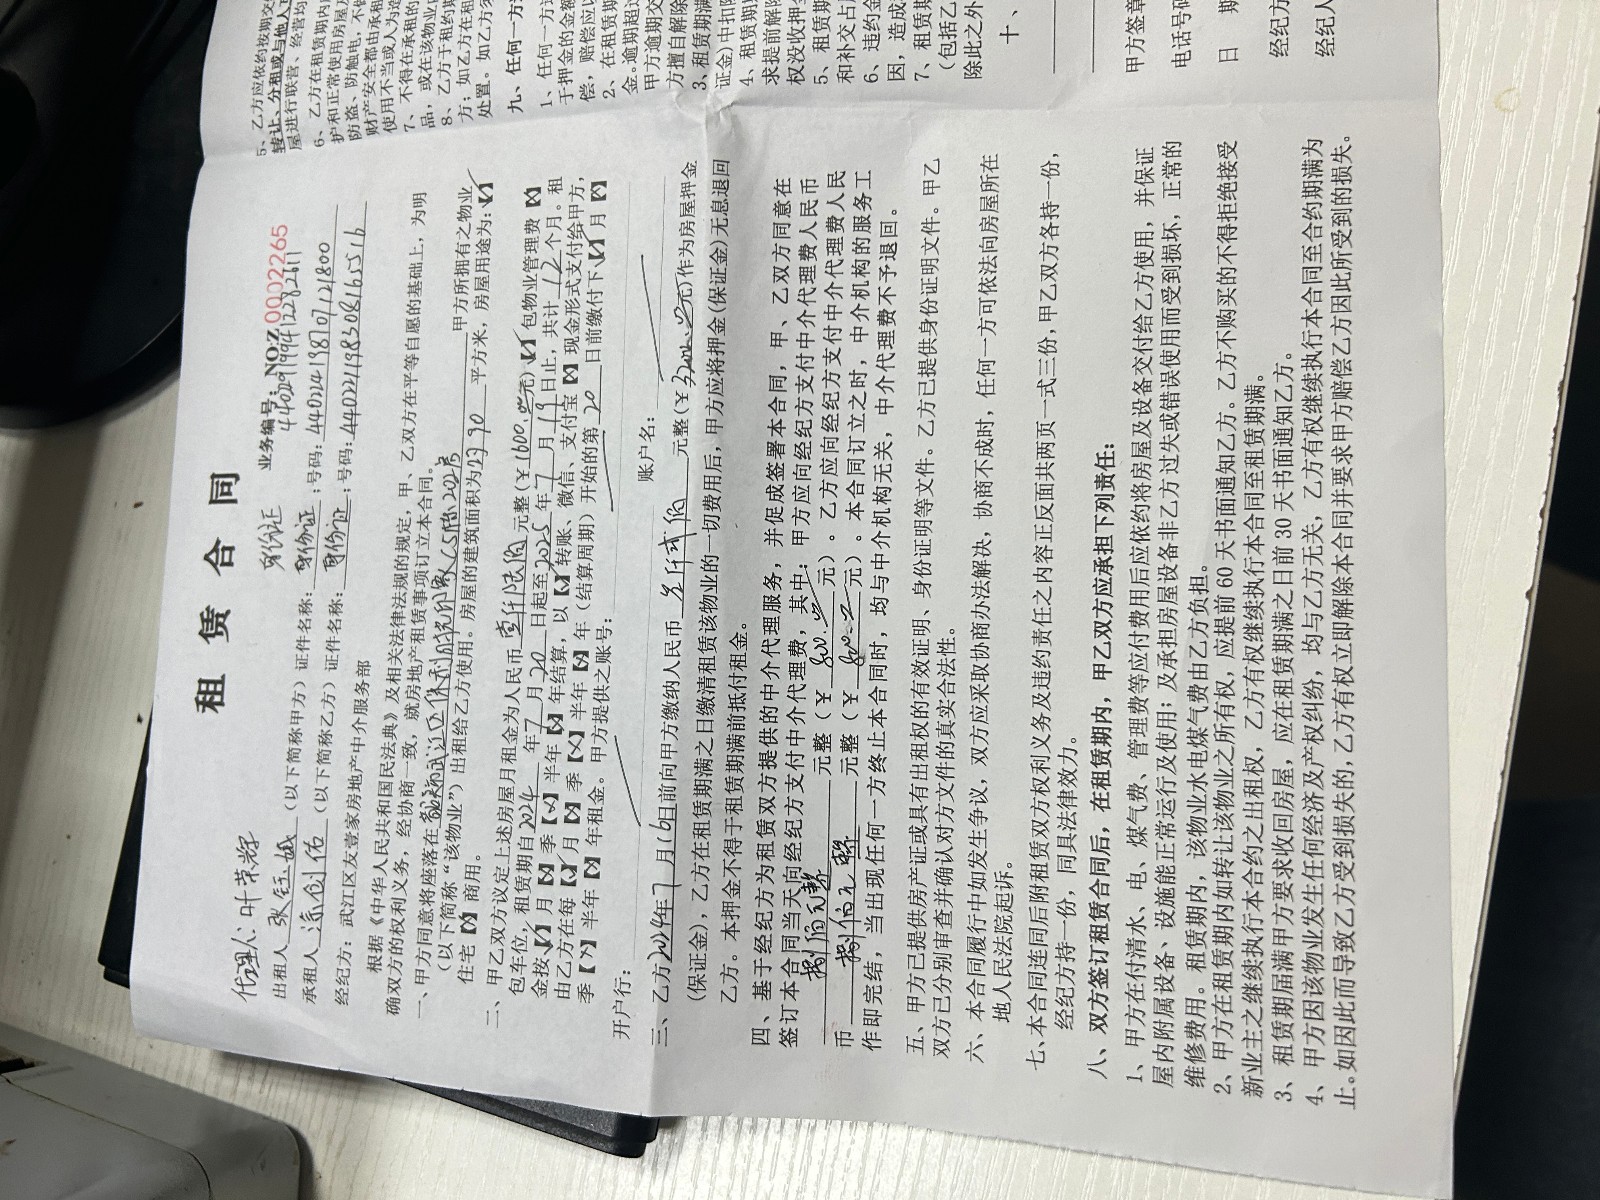 租 赁 合 同
业务编号：NO:Z 0002265
代理人：叶荣辉 身份证 440291199412282611
出租人 张钰 （以下简称甲方）证件名称：身份证；号码：440224198707121800
承租人 创佑 （以下简称乙方）证件名称：身份证；号码：440221198308165516
经纪方：武江区友壹家房地产中介服务部
根据《中华人民共和国民法典》及相关法律法规的规定，甲、乙双方在平等自愿的基础上，为明
确双方的权利义务，经协商一致，就房地产租赁事项订立本合同。
一、甲方同意将座落在 韶关市武江区 甲方所拥有之物业
（以下简称“该物业”）出租给乙方使用。房屋的建筑面积为 平方米，房屋用途为：【✓】
住宅【×】商用。
二、甲乙双方议定上述房屋月租金为人民币 壹仟陆佰 元整（￥1600.元）【✓】包物业管理费【×】
包车位，租赁期自2024年7月20日起至2025年7月19日止，共计12个月。租
金按【✓】月【×】季【×】半年【×】年结算，以【×】转账、微信、支付宝【×】现金形式支付给甲方，
由乙方在每【✓】月【×】季【×】半年【×】年（结算周期）开始的第 20 日前缴付下【✓】月【×】
季【×】半年【×】年租金。甲方提供之账号：
开户行： 账户名：
三、乙方2024年7月16日前向甲方缴纳人民币 叁仟贰佰 元整（￥3200.元）作为房屋押金
(保证金)，乙方在租赁期满之日缴清租赁该物业的一切费用后，甲方应将押金(保证金)无息退回
乙方。本押金不得于租赁期满前抵付租金。
四、基于经纪方为租赁双方提供的中介代理服务，并促成签署本合同，甲、乙双方同意在
签订本合同当天向经纪方支付中介代理费，其中：甲方应向经纪方支付中介代理费人民币
捌佰元整 元整（￥ 800. 元）。乙方应向经纪方支付中介代理费人民
币 捌佰元整 元整（￥ 800. 元）。本合同订立之时，中介机构的服务工
作即完结，当出现任何一方终止本合同时，均与中介机构无关，中介代理费不予退回。
五、甲方已提供房产证或具有出租权的有效证明、身份证明等文件。乙方已提供身份证明文件。甲乙
双方已分别审查并确认对方文件的真实合法性。
六、本合同履行中如发生争议，双方应采取协商办法解决，协商不成时，任何一方可依法向房屋所在
地人民法院起诉。
七、本合同连同后附租赁双方权利义务及违约责任之内容正反面共两页一式三份，甲乙双方各持一份，
经纪方持一份，同具法律效力。
八、双方签订租赁合同后，在租赁期内，甲乙双方应承担下列责任：
1、甲方在付清水、电、煤气费、管理费等应付费用后应依约将房屋及设备交付给乙方使用，并保证
屋内附属设备、设施能正常运行及使用；及承担房屋设备非乙方过失或错误使用而受到损坏，正常的
维修费用。租赁期内，该物业水电煤气费由乙方负担。
2、甲方在租赁期内如转让该物业之所有权，应提前 60 天书面通知乙方。乙方不购买的不得拒绝接受
新业主之继续执行本合约之出租权，乙方有权继续执行本合同至租赁期满。
3、租赁期届满甲方要求收回房屋，应在租赁期满之日前 30 天书面通知乙方。
4、甲方因该物业发生任何经济及产权纠纷，均与乙方无关，乙方有权继续执行本合同至合约期满为
止。如因此而导致乙方受到损失的，乙方有权立即解除本合同并要求甲方赔偿乙方因此所受到的损失。
5、乙方应依约按期交
转让、分租或与他人
屋进行联营、经营均
6、乙方在租赁期内
护和正常使用房屋及
防盗、防触电，不
财产安全都由承租
使用不当或人为造
7、不得在承租的
品，或在该物业
8、乙方于租约期
方；如乙方在租
处置。如乙方须
九、任何一方
1、任何一方
于押金的金额
偿，赔偿应以
2、在租赁期
金。逾期超过
甲方逾期交
方擅自解除
3、租赁期满
证金）中扣
4、租赁期
求提前解除
权没收押金
5、租赁期
和补交占用
6、违约金
因，造成
7、租赁期
（包括乙
除此之外
十、
甲方签章
电话号码
日 期
经纪方
经纪人